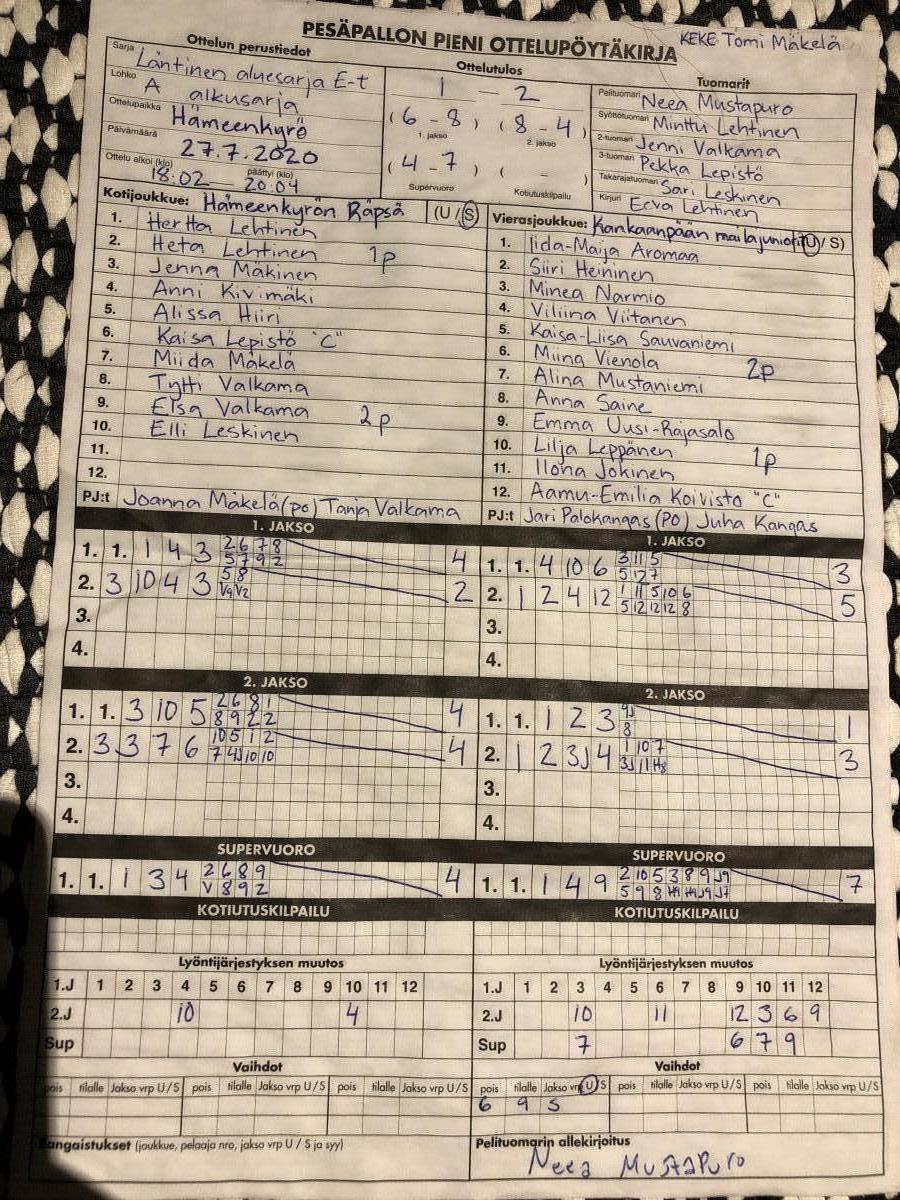 PESÄPALLON PIENI OTTELUPÖYTÄKIRJA
KEKE Tomi Mäkelä
Ottelun perustiedot
Sarja Läntinen aluesarja E-t
Lohko A alkusarja
Ottelupaikka Hämeenkyrö
Päivämäärä 27.7.2020
Ottelu alkoi (klo) 18:02 päättyi (klo) 20:04
Ottelutulos
1 - 2
(6 - 8) (8 - 4)
1. jakso 2. jakso
(4 - 7) ( - )
Supervuoro Kotiutuskilpailu
Tuomarit
Pelituomari Neea Mustapuro
Syöttötuomari Minttu Lehtinen
2-tuomari Jenni Valkama
3-tuomari Pekka Lepistö
Takarajatuomari Sari Leskinen
Kirjuri Eeva Lehtinen
Kotijoukkue: Hämeenkyrön Räpsä (U/S)
1. Hertta Lehtinen
2. Heta Lehtinen 1p
3. Jenna Mäkinen
4. Anni Kivimäki
5. Alissa Hiiri
6. Kaisa Lepistö "C"
7. Miida Mäkelä
8. Tytti Valkama
9. Elsa Valkama 2p
10. Elli Leskinen
11.
12.
PJ:t Joanna Mäkelä (po) Tanja Valkama
Vierasjoukkue: Kankaanpään mailajuniorit (U/S)
1. Iida-Maija Aromaa
2. Siiri Heininen
3. Minea Narmio
4. Viliina Viitanen
5. Kaisa-Liisa Sauvaniemi
6. Miina Vienola
7. Alina Mustaniemi 2p
8. Anna Saine
9. Emma Uusi-Rajasalo
10. Lilja Leppänen
11. Ilona Jokinen 1p
12. Aamu-Emilia Koivisto "C"
PJ:t Jari Palokangas (PO) Juha Kangas
1. JAKSO
1. 1. 1 4 3 2 6 7 8 4
5 7 9 2
2. 3 10 4 3 5 8 2
V9 V2
3.
4.
1. JAKSO
1. 1. 4 10 6 3 11 5 3
5 12 7
2. 1 2 4 12 1 11 5 10 6 5
5 12 12 12 8
3.
4.
2. JAKSO
1. 1. 3 10 5 2 6 8 1 4
8 9 2 2
2. 3 3 7 6 10 5 1 2 4
7 4J 10 10
3.
4.
2. JAKSO
1. 1. 1 2 3 9J 1
8
2. 1 2 3J 4 1 10 7 3
3J 11 H8
3.
4.
SUPERVUORO
1. 1. 1 3 4 2 6 8 9 4
V 8 9 2
SUPERVUORO
1. 1. 1 4 9 2 10 5 3 8 9 J9 7
5 9 8 H9 H4 J9 J7
KOTIUTUSKILPAILU
KOTIUTUSKILPAILU
Lyöntijärjestyksen muutos
1.J 1 2 3 4 5 6 7 8 9 10 11 12
2.J 10 4
Sup
Lyöntijärjestyksen muutos
1.J 1 2 3 4 5 6 7 8 9 10 11 12
2.J 10 11 12 3 6 9
Sup 7 6 7 9
Vaihdot
pois tilalle Jakso vrp U/S pois tilalle Jakso vrp U/S pois tilalle Jakso vrp U/S
Vaihdot
pois tilalle Jakso vrp U/S pois tilalle Jakso vrp U/S pois tilalle Jakso vrp U/S
6 9 S
Rangaistukset (joukkue, pelaaja nro, jakso vrp U / S ja syy)
Pelituomarin allekirjoitus
Neea Mustapuro